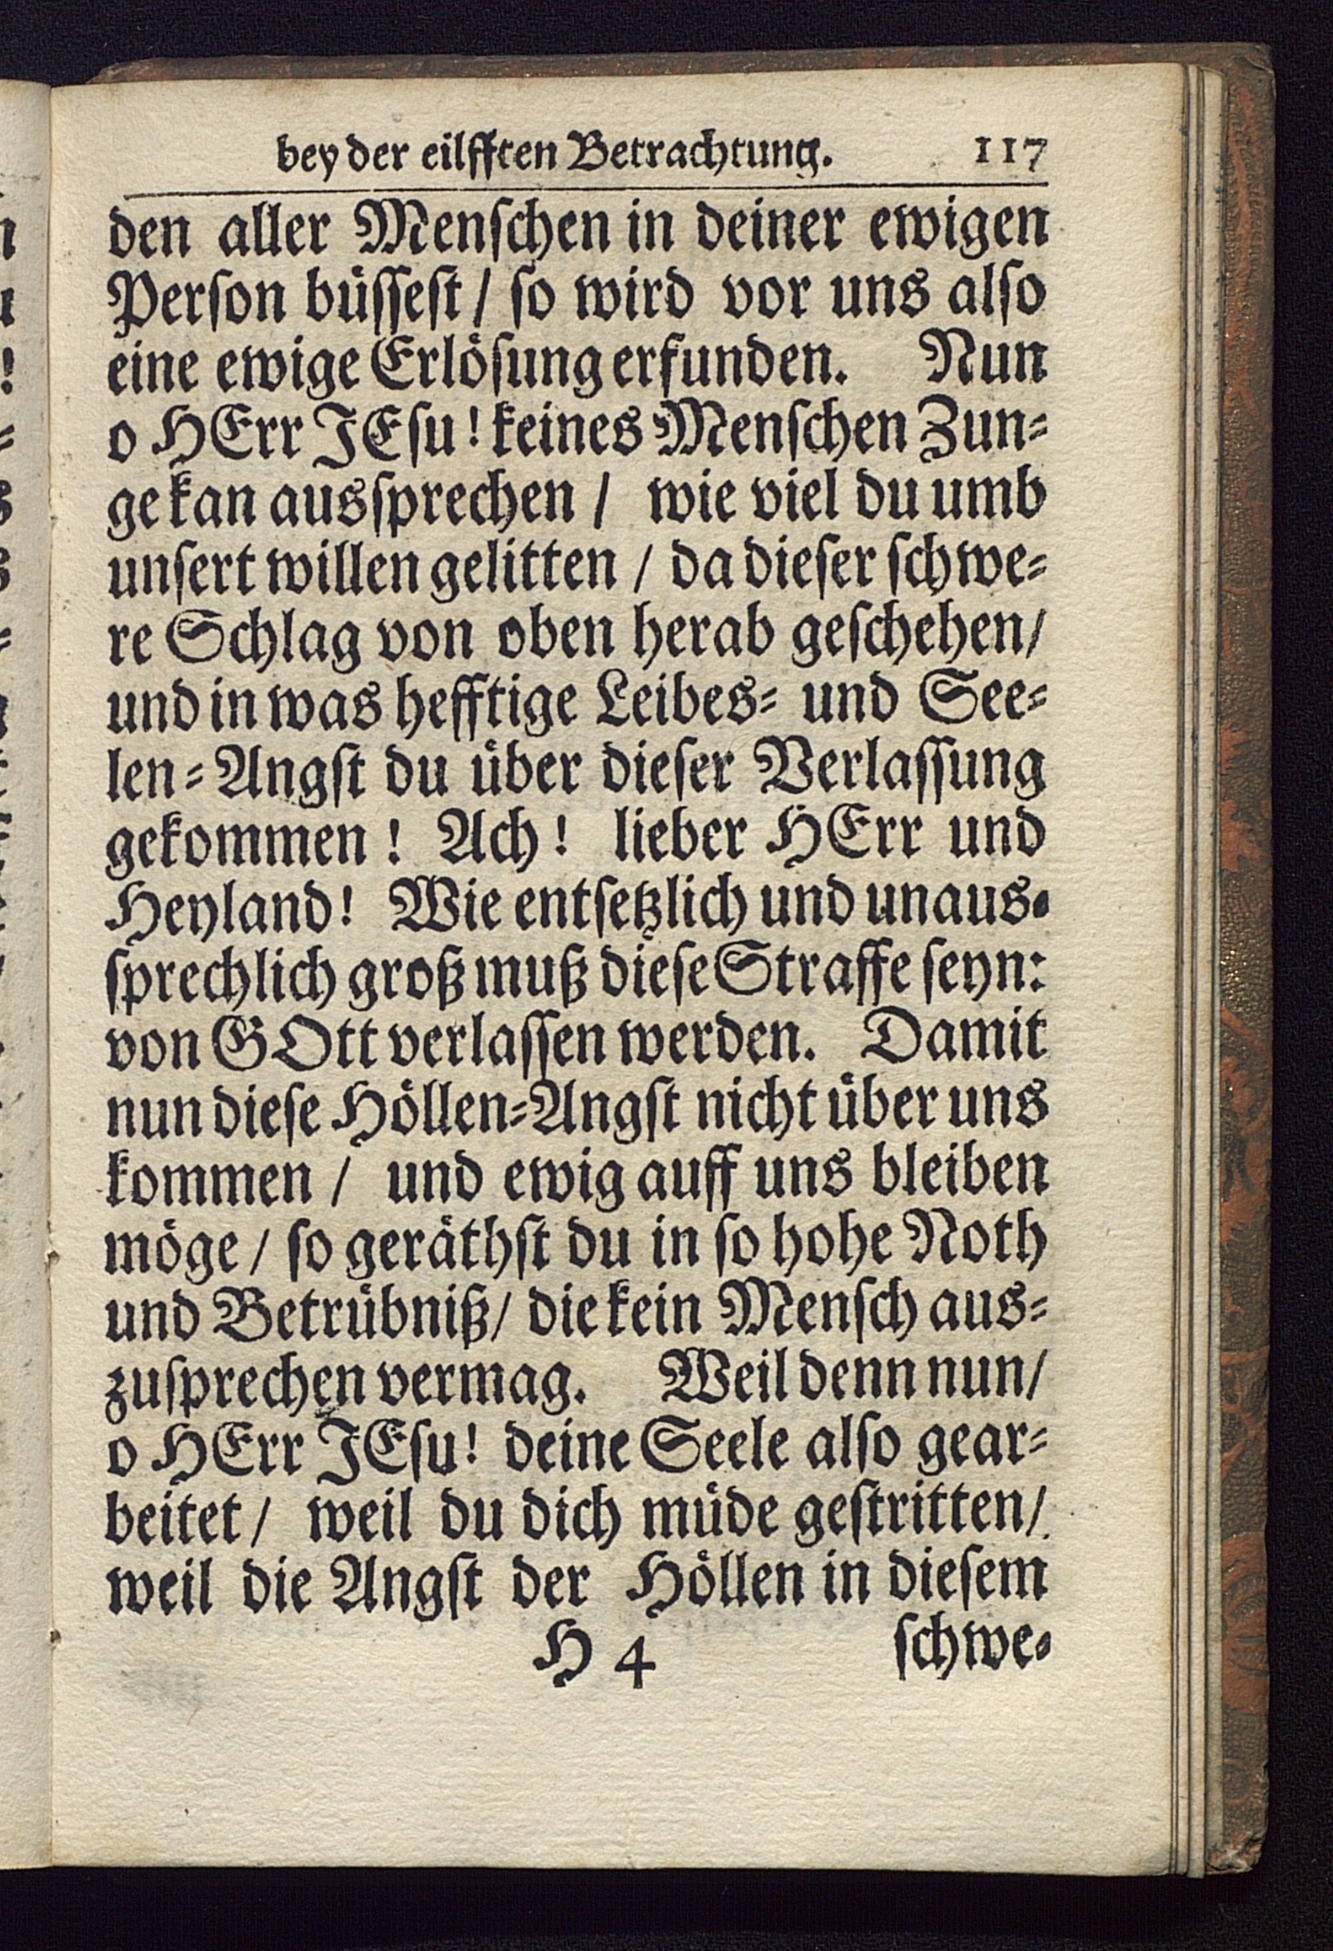 bey der eilfften Betrachtung. 117
den aller Menſchen in deiner ewigen
Perſon büſſeſt / ſo wird vor uns alſo
eine ewige Erlöſung erfunden. Nun
o HErr JEſu! keines Menſchen Zun⸗
ge kan ausſprechen / wie viel du umb
unſert willen gelitten / da dieſer ſchwe⸗
re Schlag von oben herab geſchehen/
und in was hefftige Leibes⸗ und See⸗
len⸗Angſt du über dieſer Verlaſſung
gekommen! Ach! lieber HErr und
Heyland! Wie entſetzlich und unaus⸗
ſprechlich groß muß dieſe Straffe ſeyn:
von GOtt verlaſſen werden. Damit
nun dieſe Höllen⸗Angſt nicht über uns
kommen / und ewig auff uns bleiben
möge / ſo geräthſt du in ſo hohe Noth
und Betrübniß/ die kein Menſch aus⸗
zuſprechen vermag. Weil denn nun/
o HErr JEſu! deine Seele alſo gear⸗
beitet / weil du dich müde geſtritten/
weil die Angſt der Höllen in dieſem
H 4 ſchwe⸗